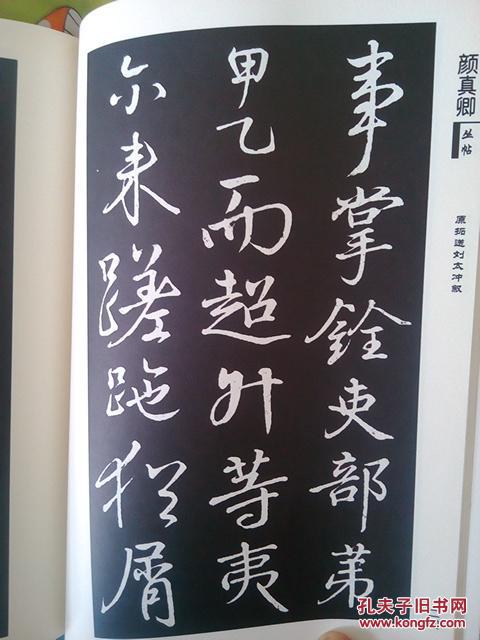 颜真卿
丛帖
原拓送刘太冲叙
事掌銓吏部苐
甲乙而超升等夷
尒来蹉跎猶屑
孔夫子旧书网
www.kongfz.com